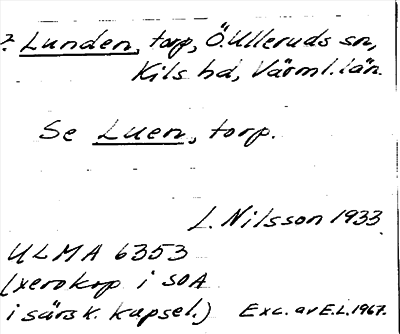 ? Lunden, torp, Ö. Ulleruds sn,
Kils hd, Värml. län.
Se Luen, torp.
L. Nilsson 1933.
ULMA 6353
(xerokop i SOA
i särsk. kapsel.) Exc. av E.L. 1967.